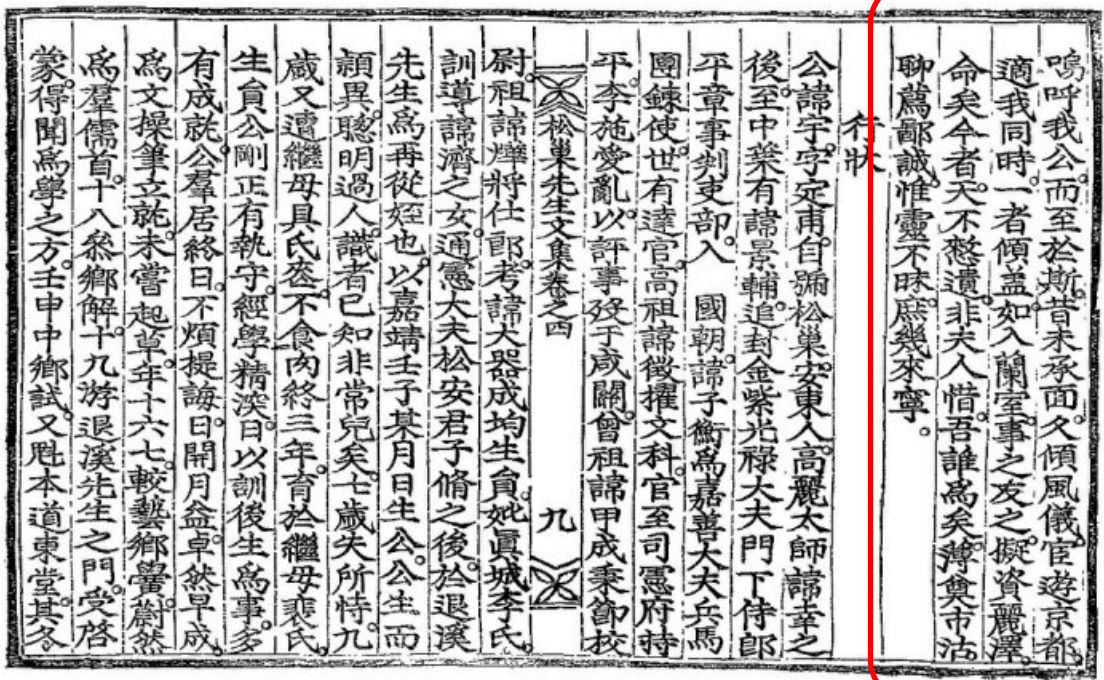 嗚呼我公。而至於斯。昔未承面。久傾風儀。宦遊京都。
適我同時。一者傾盖。如入蘭室。事之友之。擬資麗澤。
命矣今者。天不憖遺。非夫人惜。吾誰爲矣。薄奠市沽。
聊薦鄙誠。惟靈不昧。庶幾來寧。
行狀
公諱宇。字定甫。自號松巢。安東人。高麗太師諱幸之
後。至中葉有諱景輔。追封金紫光祿大夫門下侍郎
平章事判吏部。入 國朝。諱子衡爲嘉善大夫兵馬
團鍊使。世有達官。高祖諱徵擢文科。官至司憲府持
平。李施愛亂。以評事歿于咸關。曾祖諱甲成秉節校
松巢先生文集卷之四 九
尉。祖諱燁將仕郎。考諱大器成均生員。妣眞城李氏。
訓導諱濟之女。通憲大夫松安君子脩之後。於退溪
先生爲再從姪也。以嘉靖壬子某月日生公。公生而
穎異。聰明過人。識者已知非常兒矣。七歲失所恃。九
歲又遭繼母具氏喪。不食肉終三年。育於繼母裵氏。
生員公剛正有執守。經學精深。日以訓後生爲事。多
有成就。公羣居終日。不煩提誨。日開月益。卓然早成。
爲文操筆立就。未嘗起草。年十六七。較藝鄕黌。蔚然
爲羣儒首。十八叅鄕解。十九游退溪先生之門。受啓
蒙。得聞爲學之方。壬申中鄕試。又魁本道東堂。其冬